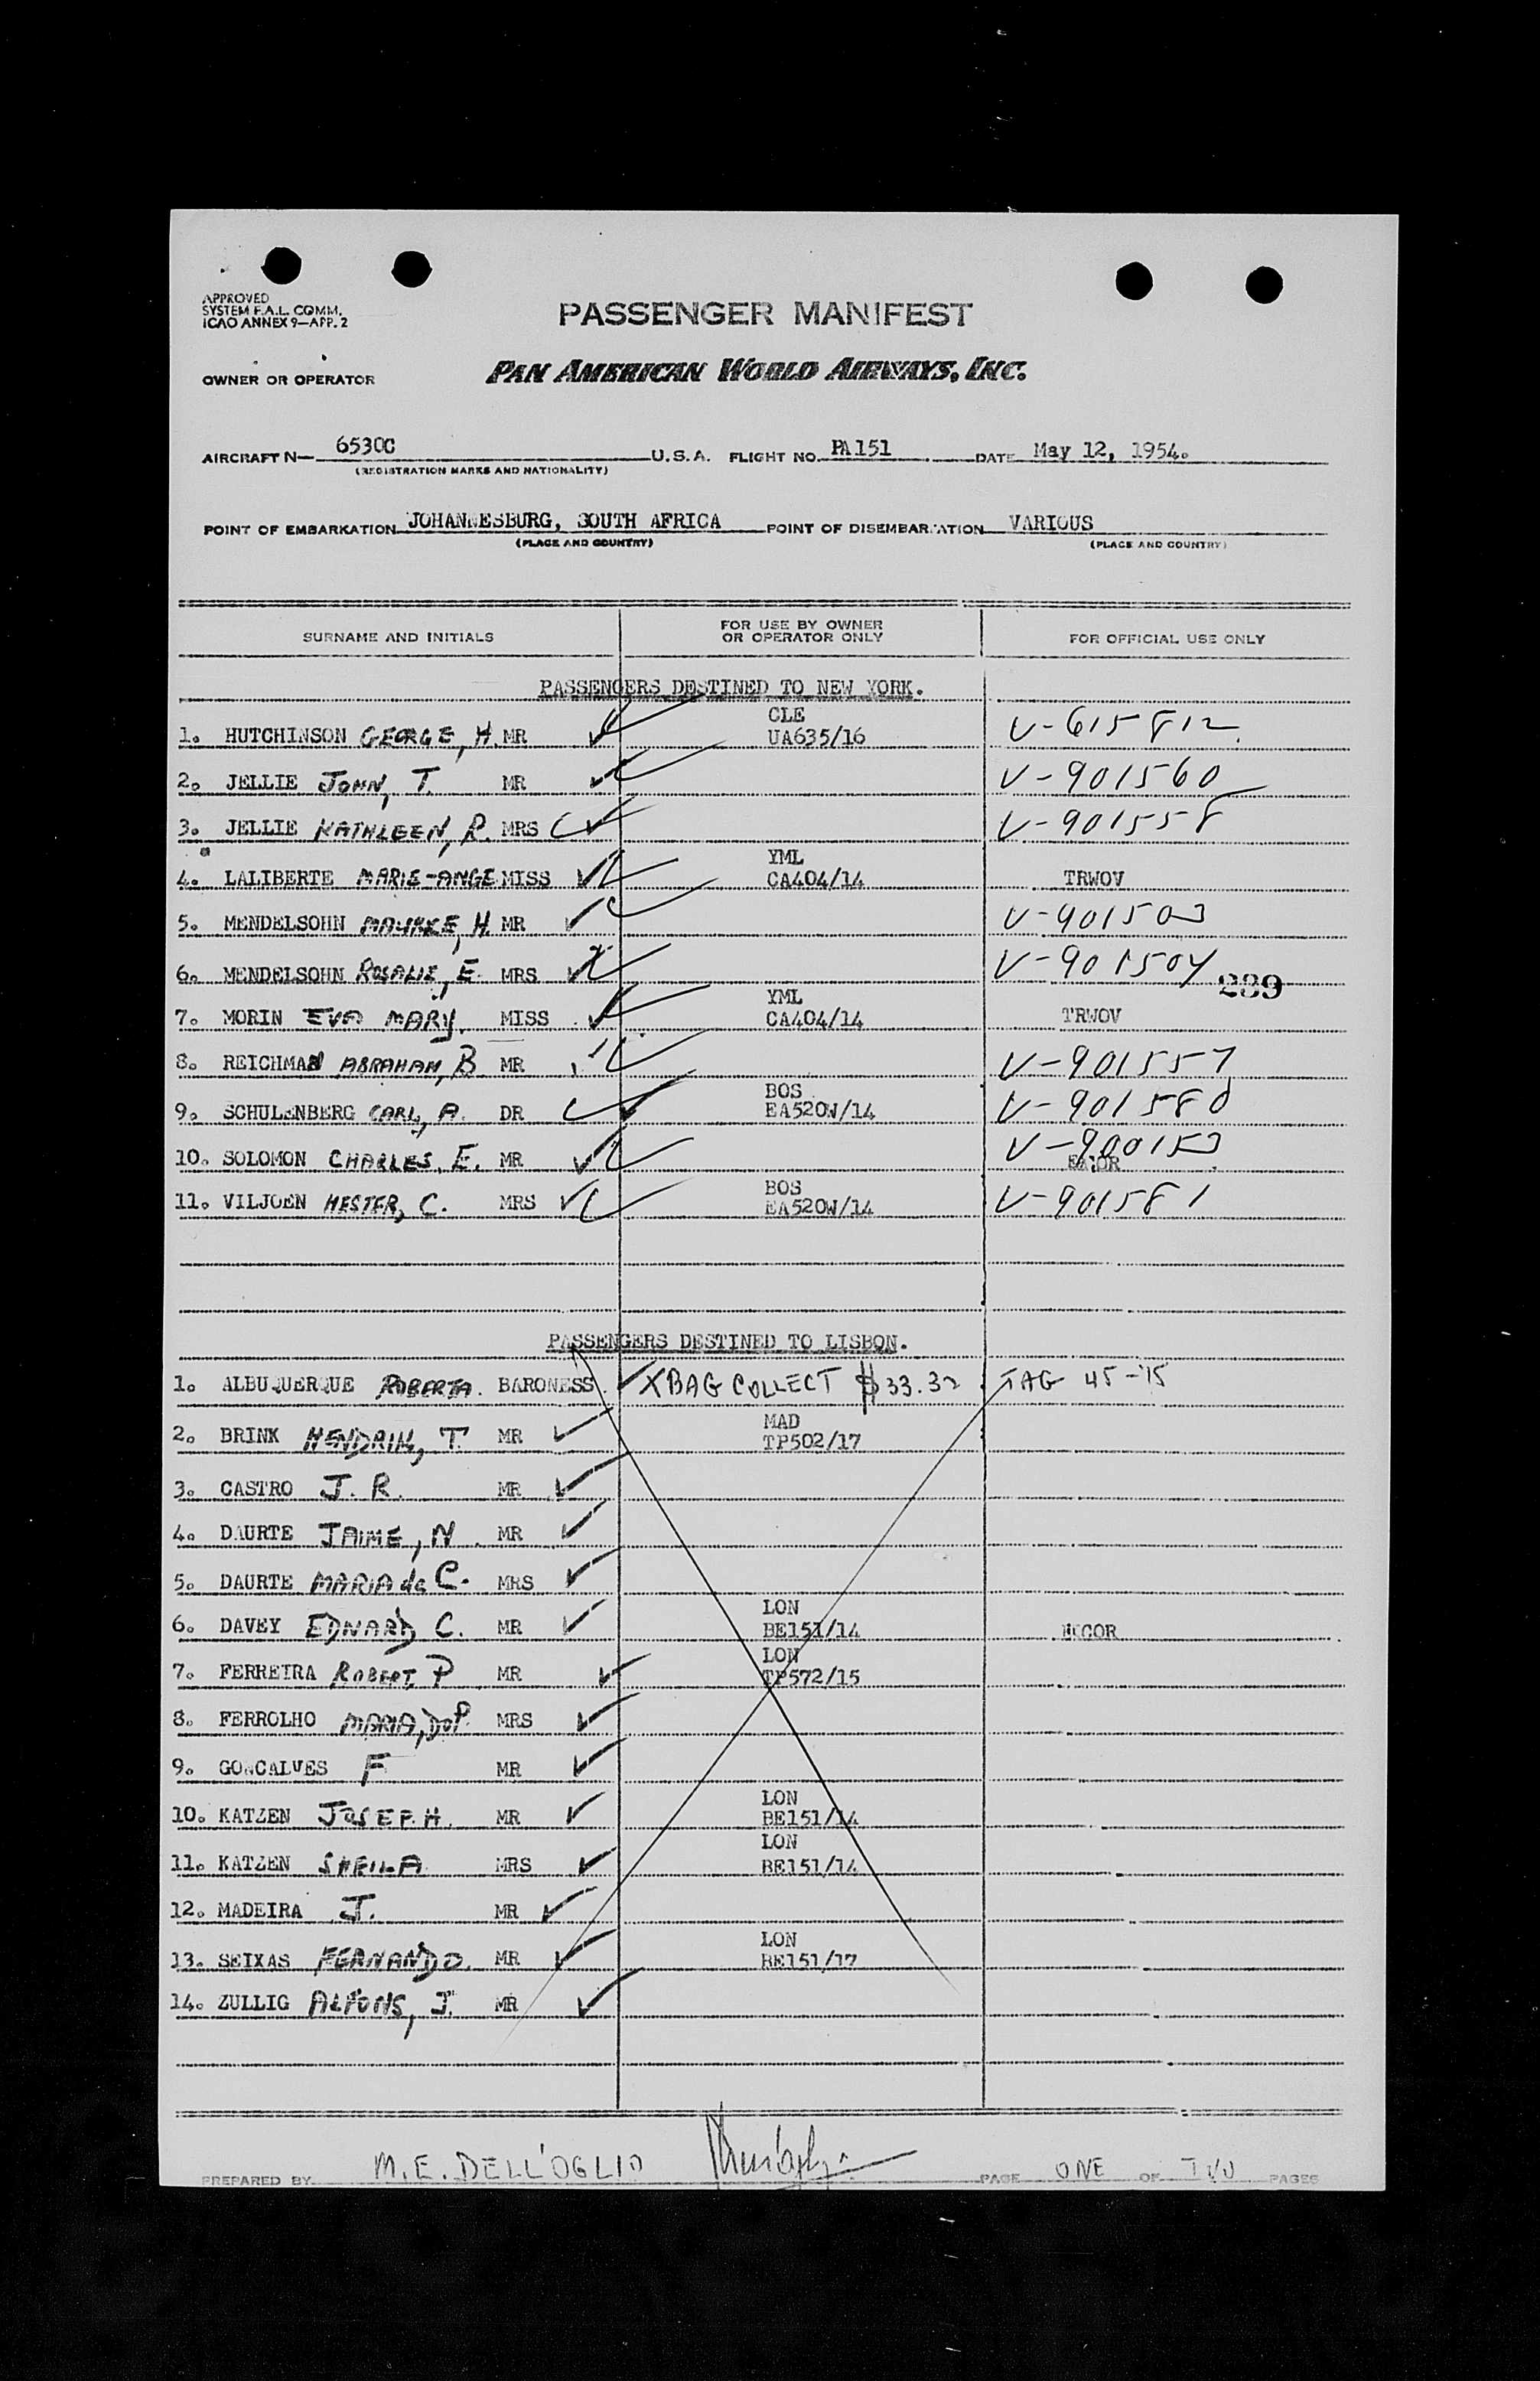 APPROVED
SYSTEM F.A.L. COMM.
ICAO ANNEX 9—APP. 2
PASSENGER MANIFEST
OWNER OR OPERATOR PAN AMERICAN WORLD AIRWAYS, INC.
AIRCRAFT N— 6530C U.S.A. FLIGHT NO. PA151 DATE May 12, 1954.
(REGISTRATION MARKS AND NATIONALITY)
POINT OF EMBARKATION JOHANNESBURG, SOUTH AFRICA POINT OF DISEMBARKATION VARIOUS
(PLACE AND COUNTRY) (PLACE AND COUNTRY)
SURNAME AND INITIALS FOR USE BY OWNER OR OPERATOR ONLY FOR OFFICIAL USE ONLY
PASSENGERS DESTINED TO NEW YORK.
CLE
1. HUTCHINSON GEORGE, H. MR UA635/16 V-615812
2. JELLIE JOHN, T. MR V-901560
3. JELLIE KATHLEEN, R. MRS V-901558
YML
4. LALIBERTE MARIE-ANGE MISS CA404/14 TRWOV
5. MENDELSOHN H. MR V-901503
6. MENDELSOHN ROSALIE, E. MRS V-901504
239
YML
7. MORIN EVA MARY. MISS CA404/14 TRWOV
8. REICHMAN ABRAHAM, B MR V-901557
BOS
9. SCHULENBERG CARL, A. DR EA520W/14 V-901580
10. SOLOMON CHARLES, E. MR V-900153
BOS
11. VILJOEN HESTER, C. MRS EA520W/14 V-901581
PASSENGERS DESTINED TO LISBON.
1. ALBUQUERQUE ROBERTA. BARONESS. XBAG COLLECT $33.32 TAG 45-15
MAD
2. BRINK HENDRIK, T. MR TP502/17
3. CASTRO J. R. MR
4. DAURTE JAIME, N. MR
5. DAURTE MARIA da C. MRS
LON
6. DAVEY EDWARD, C. MR BE151/14
LON
7. FERREIRA ROBERT, P MR TP572/15
8. FERROLHO MARIA, DoP. MRS
9. GONCALVES F MR
LON
10. KATZEN JOSEPH. MR BE151/14
LON
11. KATZEN SHEILA MRS BE151/14
12. MADEIRA J. MR
LON
13. SEIXAS FERNANDO. MR BE151/17
14. ZULLIG ALFONS, J. MR
PREPARED BY M.E. DELL'OGLIO PAGE ONE OF TWO PAGES